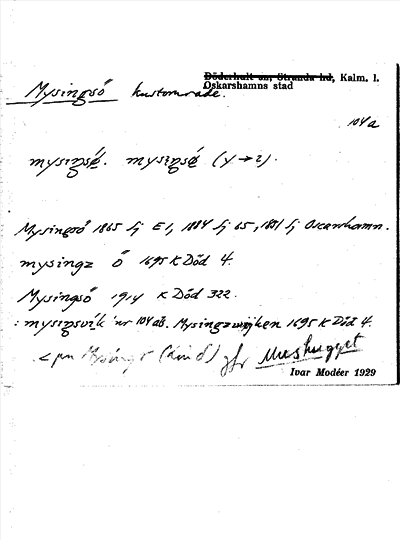 Döderhult sn, Stranda hd, Kalm. l.
Oskarshamns stad
Mysingsö kustområde.
104a
mysiŋsé. mysiŋsé (y→i).
Mysingsö 1865 Lj E1, 1884 Lj 65, 1881 Lj Oscarshamn.
mysingz ö 1695 K Död 4.
Mysingsö 1914 K Död 322.
: mysiŋsvik nr 104 ab. Mysingzwijken 1695 K Död 4.
< pn Mysing jfr Mushugget
Ivar Modéer 1929